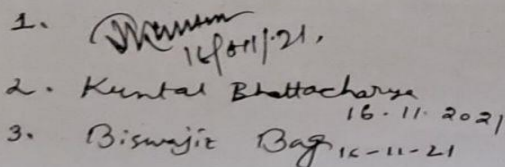 1.
16/11/21.
2. Kuntal Bhattacharya
16.11.2021
3. Biswajit Bag 16-11-21